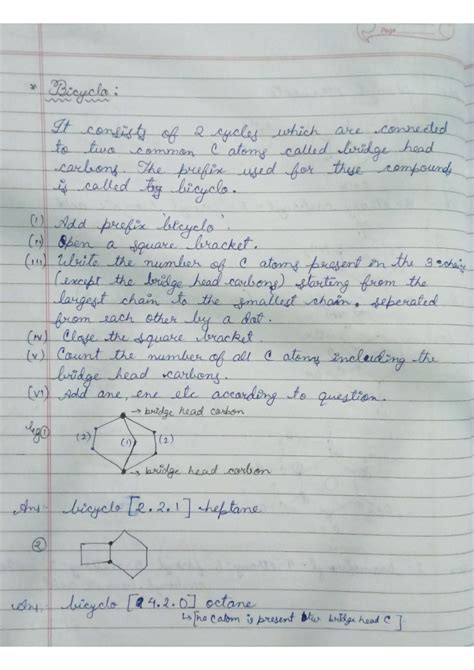 Page
* Bicyclo :
It consists of 2 cycles which are connected
to two common C atoms called bridge head
carbons. The prefix used for these compounds
is called bicyclo.
(i) Add prefix 'bicyclo'.
(ii) Open a square bracket.
(iii) Write the number of C atoms present in the 3 chain
(except the bridge head carbons) starting from the
largest chain to the smallest chain, seperated
from each other by a dot.
(iv) Close the square bracket.
(v) Count the number of all C atoms including the
bridge head carbons.
(vi) Add ane, ene etc according to question.
eg ① → bridge head carbon
(2) (1) (2)
→ bridge head carbon
Ans- bicyclo [2.2.1] heptane
②
Ans, bicyclo [4.2.0] octane
↳ [no C atom is present b/w bridge head C]